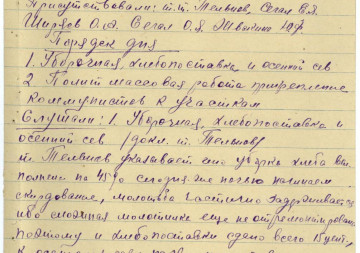 Присутствовали: т.т. Тельнов, Сегал В.Я.
Ширяев О.А. Сегал О.Я. Швыдкина
Порядок дня
1. Уборочная, хлебопоставка и осенний сев
2. Полит массовая работа прикрепление
коммунистов к участкам
Слушали: 1. Уборочная, хлебопоставка и
осенний сев /докл. т. Тельнов/
т. Тельнов указывает что уборка хлеба вы
полнена на 45% сегодня же ночью начинаем
скирдование, молотьба частично задерживаетс
ибо сложная молотилка еще не отремонтирована
поэтому и хлебопоставки сдано всего 15